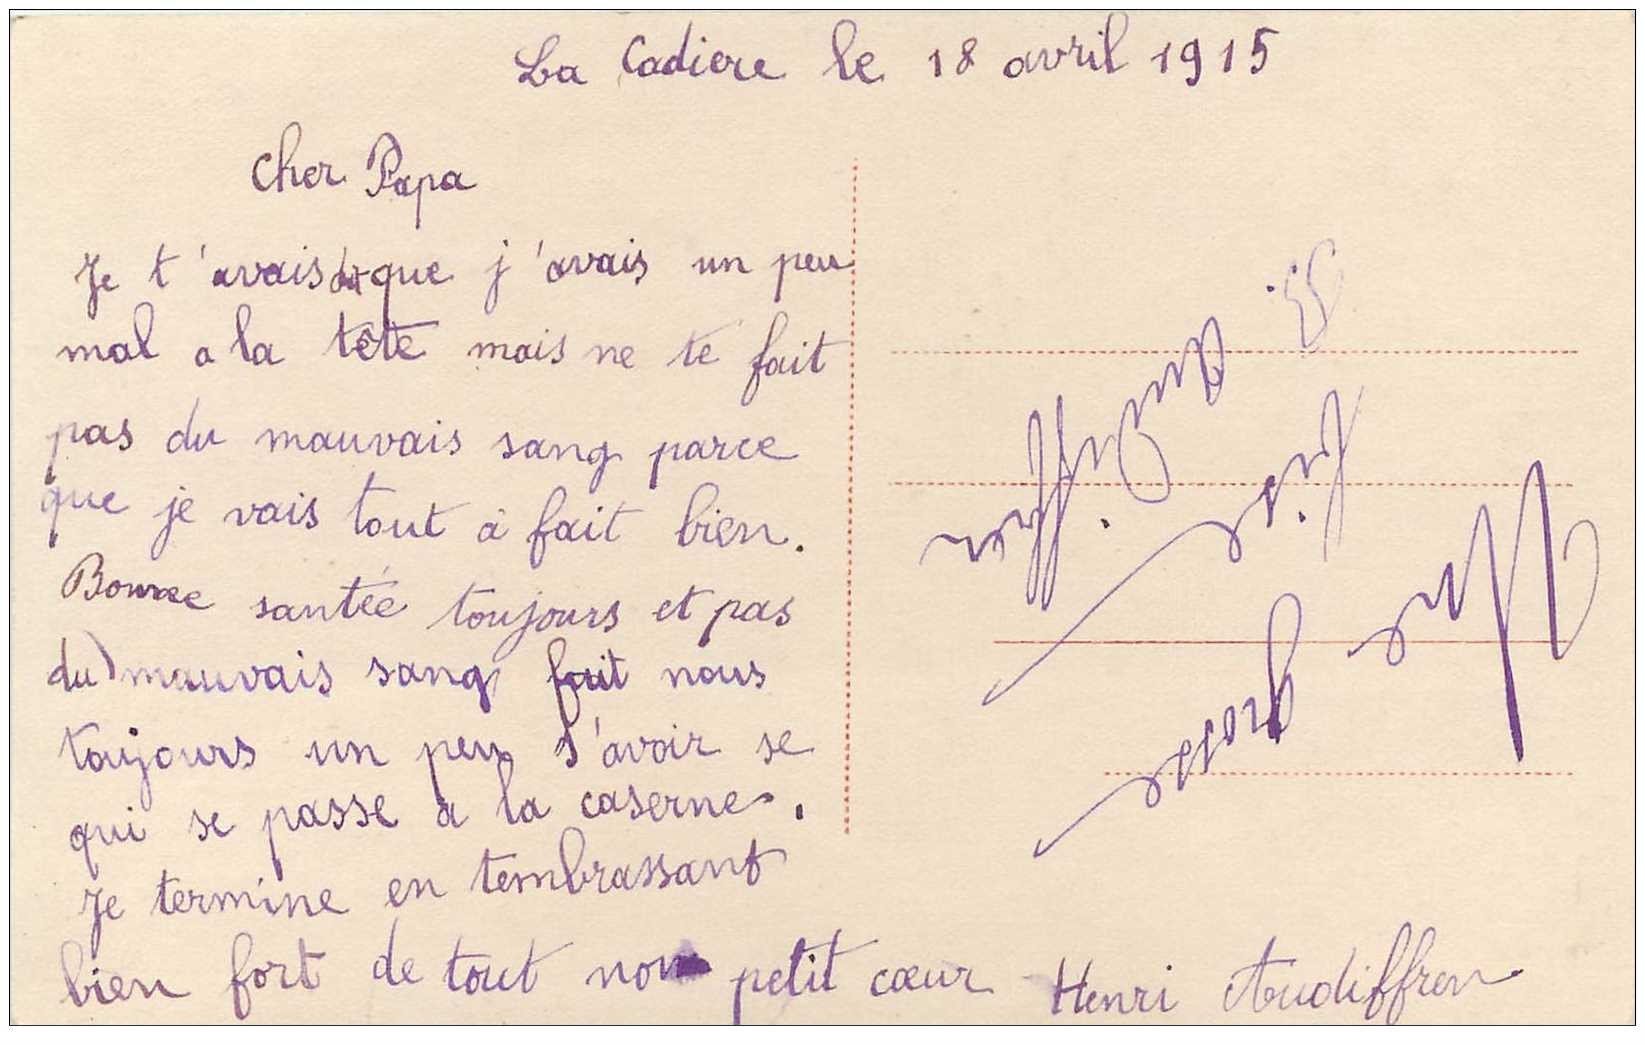 La Cadiere le 18 avril 1915
Cher Papa
Je t'avais dit que j'avais un peu
mal a la tête mais ne te fait
pas du mauvais sang parce
que je vais tout à fait bien.
Bonne santée toujours et pas
du mauvais sang fait nous
toujours un peu s'avoir se
qui se passe a la caserne.
Je termine en tembrassant
bien fort de tout non petit cœur Henri Audiffren
Audiffren